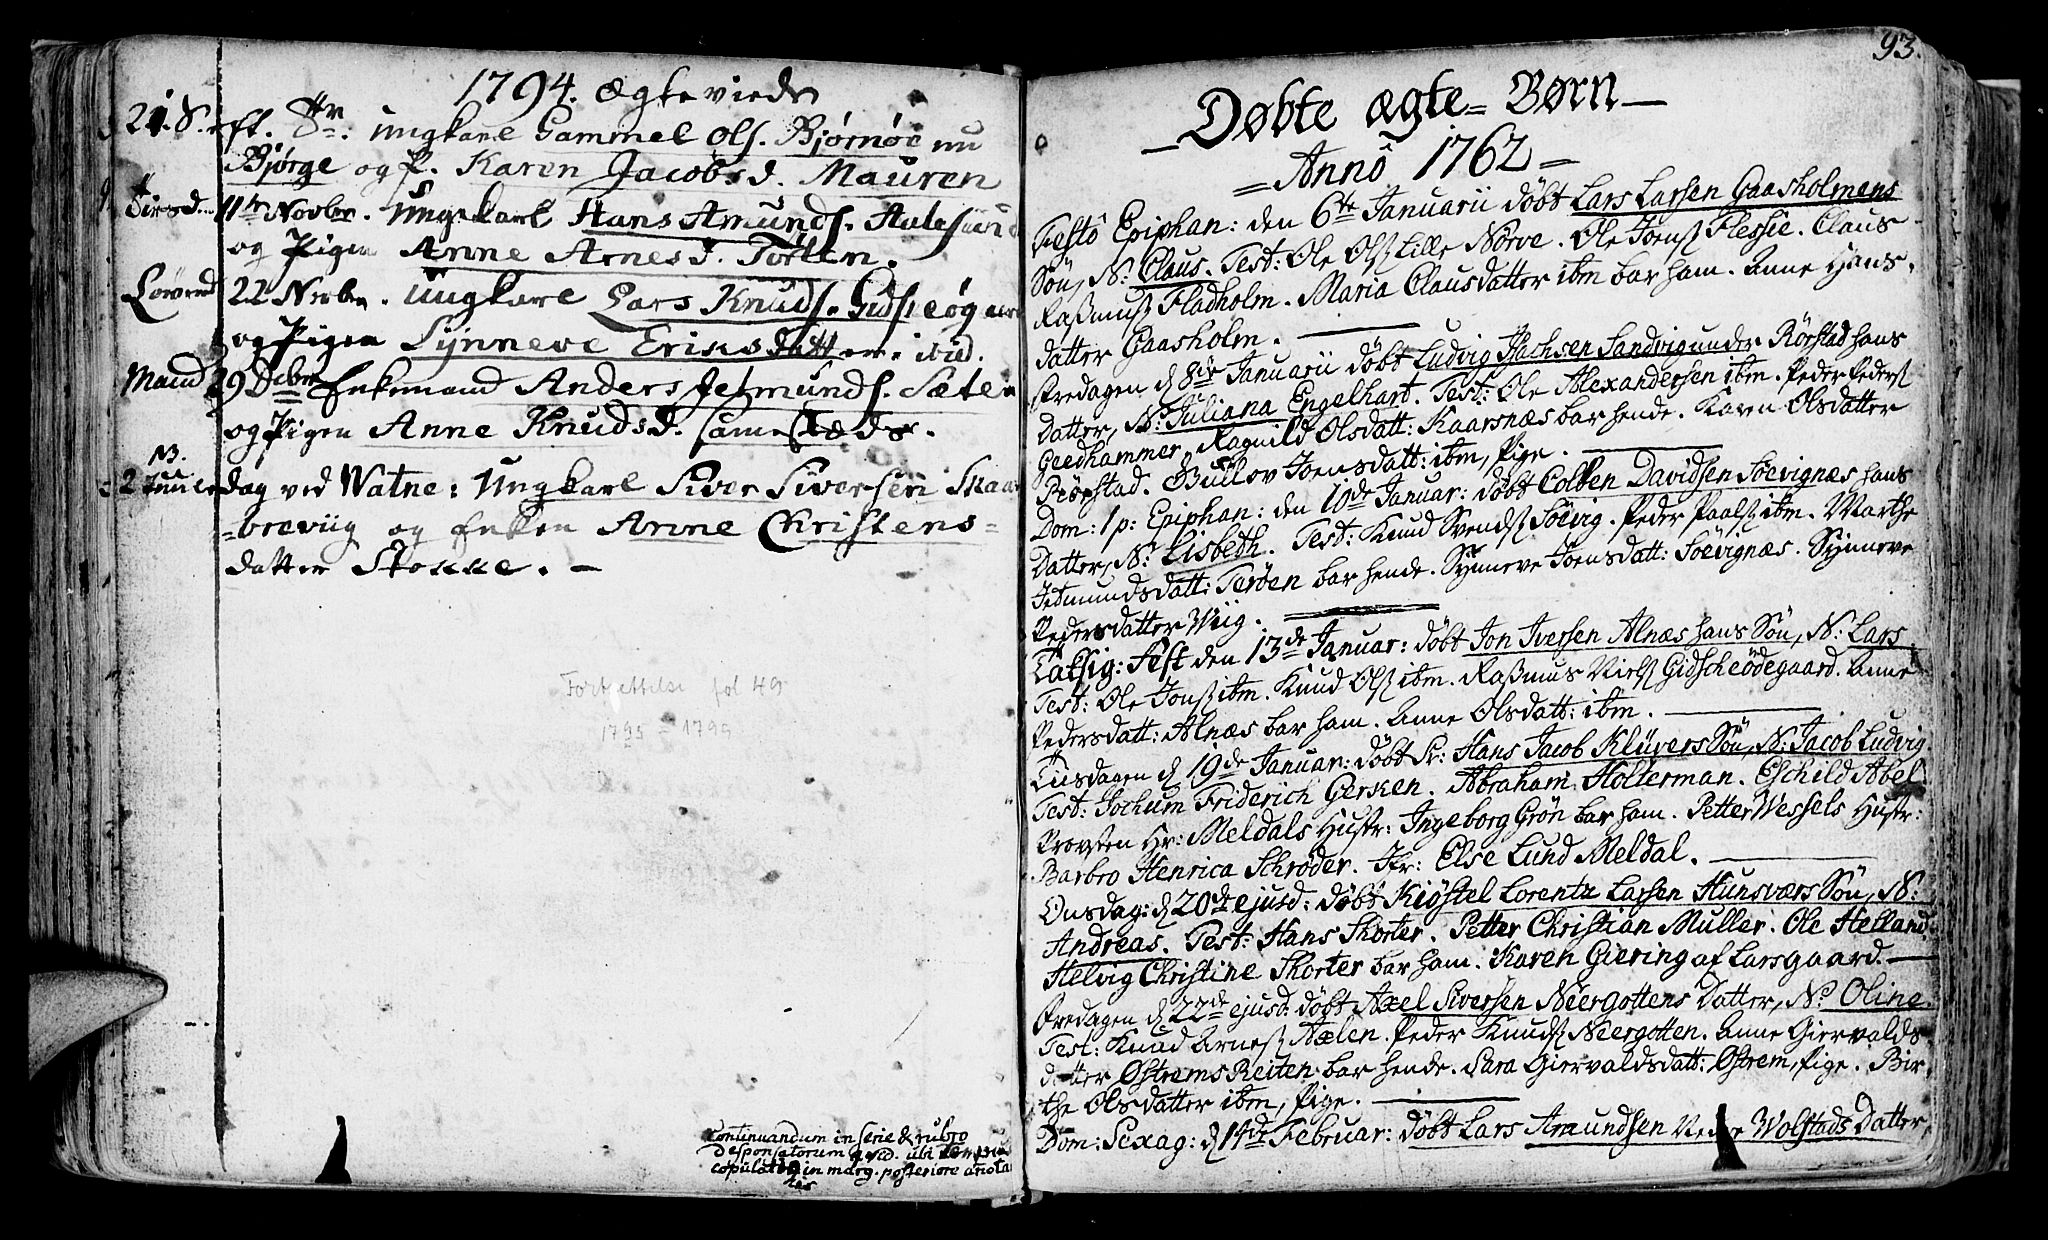 1794. Ægteviede
21. S. eft. Tr. Ungkarl Gammel Ols. Bjørnøe nu
Bjørge og P. Karen Jacobsd. Mauren
Tirsd. 11te Novbr. Ungkarl Hans Amunds. Aalesund
og Pigen Anne Arnesd.
Løverd 22 Novbr. Ungkarl Lars Knuds. Gidsk
og Pigen Synneve Eriks Datter. ibid.
Mand 29 Dcbr Enkemand Anders Jetmunds. Sæter
og Pigen Anne Knudsd. samestæds.
N3.
2 Juuledag ved Watne: Ungkarl Siver Siversen Skaar
=breviig og Enken Anne Christens=
datter Stokke. —
Fortsettelse fol 49
1795 - 1799
Continuandum in serie & rubro
Desponsatorum qvid. ubi
copulatos in marg. posteriore anota
93.
— Døbte ægte= Børn —
= Anno 1762 =
Festo Epiphan: den 6te Januarii døbt Lars Larsen Gaasholmens
Søn, N: Claus. Test: Ole Olsß Lille Nørve. Ole Joensß Flessie. Claus
Raßmusß Fladholm. Maria Clausdatter ibm bar ham. Anne Hans,
datter Gaasholm. —
Fredagen d 8de Januarii døbt Ludvig Sachsen Sandvig under Rørstad hans
Datter, N: Juliana Engelhart. Test: Ole Alexandersen ibm. Peder Pedersß
Geedhammer. Ragnild Olsdatt: Kaarsnæs bar hende. Karen Olsdatter
Rørstad. Gullov Joensdatt: ibm, Pige. —
Dom: 1 p: Epiphan: den 10de Januar: døbt Colben Davidsen Søevignæs hans
Datter, N: Lisbeth. Test: Knud Svendsß Søevig. Peder Paalsß ibm. Marthe
Jetmundsdatt: Terøen bar hende. Synneve Joensdatt: Søevignæs. Synneve
Pedersdatter Wiig. —
Taksig: Fest den 13de Januar: døbt Jon Iversen Alnæs hans Søn, N: Lars
Test: Ole Jonsß ibm. Knud Olsß ibm. Raßmus Nielsß Gidscheødegaard. Anne
Pedersdatt: Alnæs bar ham. Anne Olsdatt: ibm. —
Tiisdagen d 19de Januar: døbt Sr: Hans Jacob Klüvers Søn, N: Jacob Ludvig
Test: Jochum Friderich Gersken. Abraham Hollerman. Eschild Abel
Provsten Hr: Meldals Hustr: Ingeborg Grøn bar ham. Petter Wessels Hustr:
Barbro Henrica Schrøder. Jfr: Else Lund Meldal. —
Onsdag: d 20de ejusd: døbt Kiøstel Lorentz Lassen Hunsværs Søn, N:
Andreas. Test: Hans Skorter. Petter Christian Muller. Ole Hetland
Helvig Christine Skorter bar ham. Karen Giering af Larsgaard. —
Fredagen d 22de ejusd: døbt Axel Siversen Neergottens Datter, N: Oline.
Test: Knud Arnesß Axelen. Peder Knudsß Neergotten. Anne Giervalds
datter Østrems Reiten bar hende. Sara Giervaldsdatt: Østrem, Pige. Bir,
the Olsdatter ibm, Pige. —
Dom: Sexag: d 14de Februar: døbt Lars Amundsen Nedre Wolstads Datter,